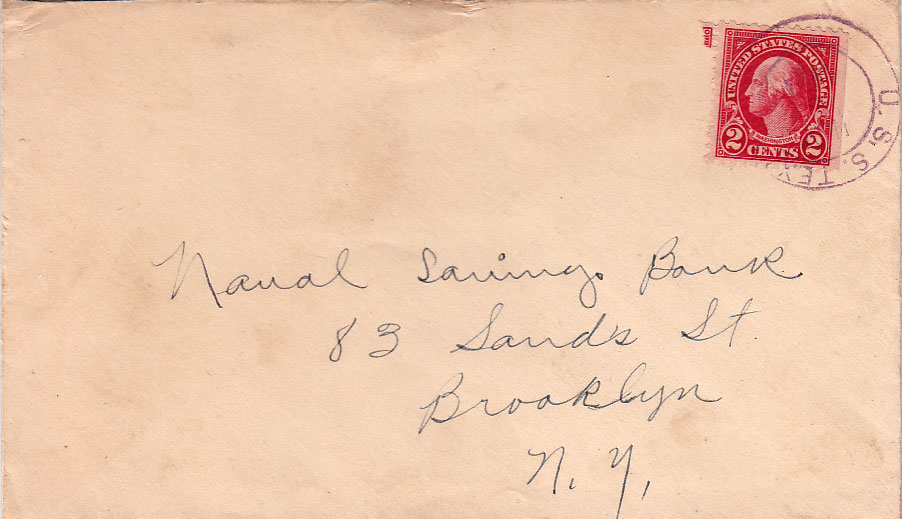 UNITED STATES POSTAGE
WASHINGTON
2 CENTS 2
U. S. S. TEX
Naval Savings Bank
83 Sands St.
Brooklyn
N. Y.